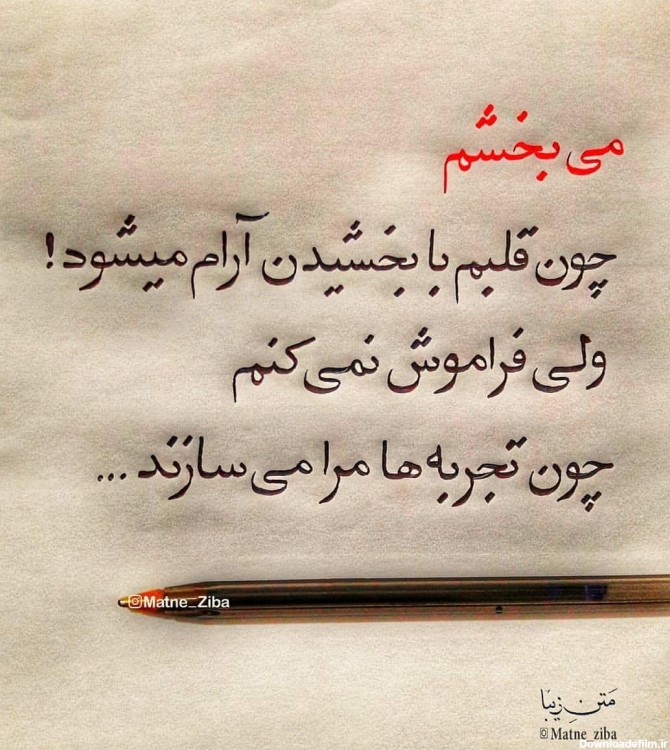 می بخشم
چون قلبم با بخشیدن آرام میشود!
ولی فراموش نمی کنم
چون تجربه ها مرا می سازند ...
Matne_Ziba
متن زیبا
© Matne_ziba
Downloadefilm.ir